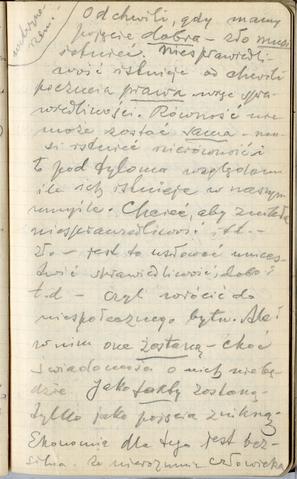 Od chwili, gdy mamy
pojęcie dobra - zło musi
istnieć. Niesprawiedli
wość istnieje od chwili
poczucia prawa spra-
wiedliwości. Równość nie
może zostać sama - mu-
si istnieć nierówność i
to pod tyloma względami
ile ich istnieje w naszym
umyśle. Chcieć, aby znikła
niesprawiedliwość itd. -
zło - jest to usiłować unice-
stwić sprawiedliwość, dobro i
t.d - czyli wrócić do
niespołecznego bytu. Ale i
w nim one zostaną - choć
świadomości o nich nie bę-
dzie. Jako fakty zostaną -
tylko jako pojęcia znikną.
Ekonomia dla tego jest bez-
silna, że nie rozumie człowieka